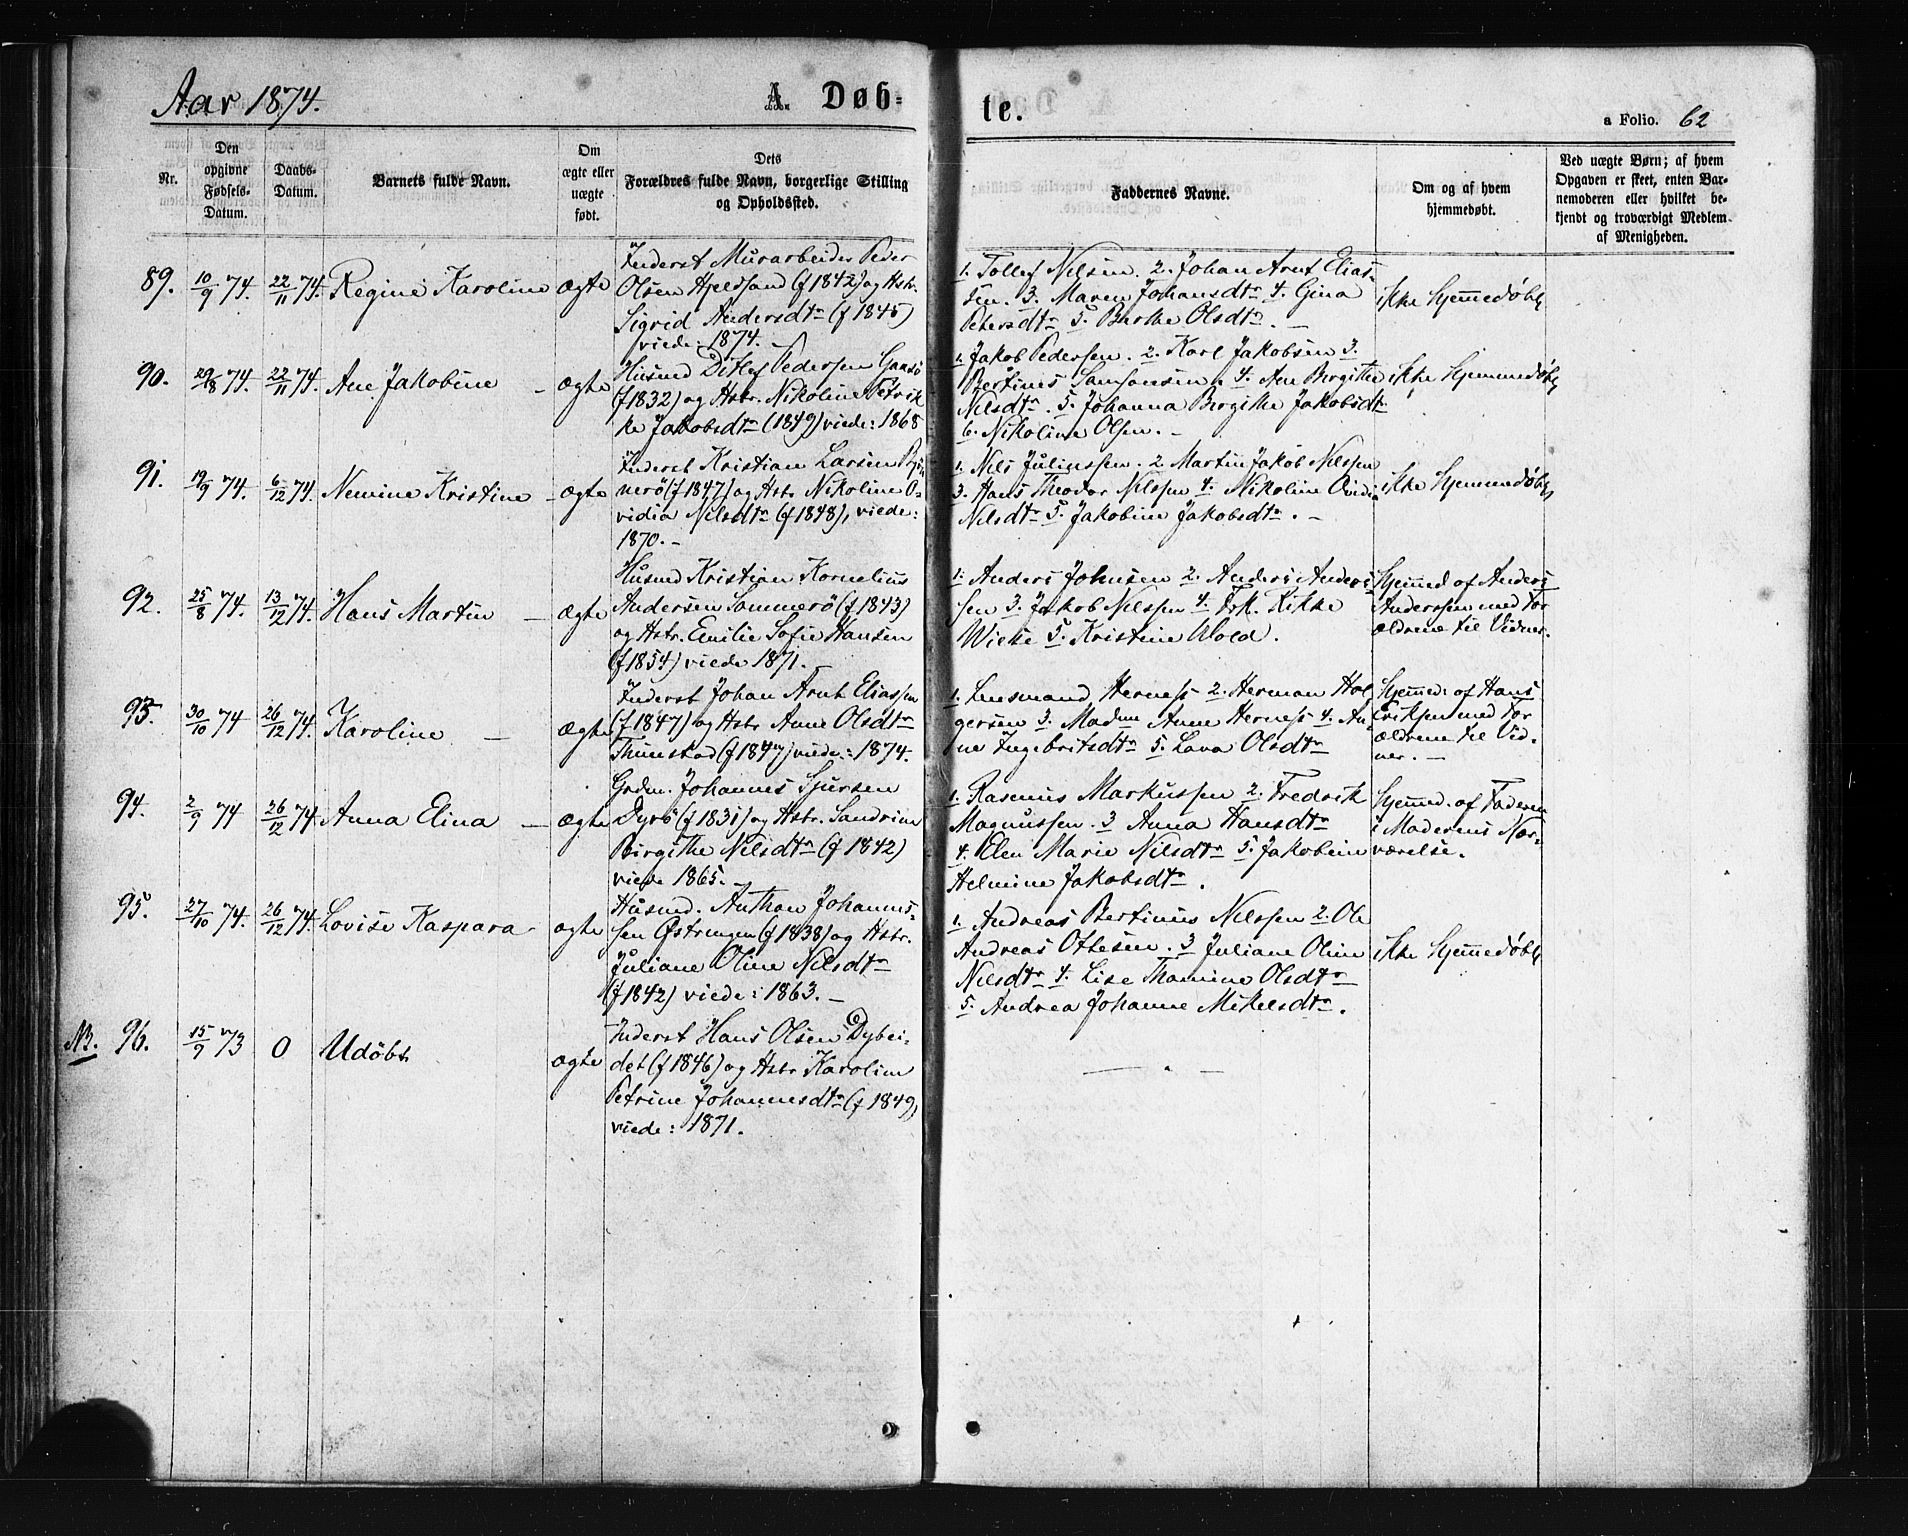 Aar 1874.
A. Døb-
te.
a Folio. 62
Nr.
Den
opgivne
Fødsels-
Datum.
Daabs-
Datum.
Barnets fulde Navn.
Om
ægte eller
uægte
født.
Dets
Forældres fulde Navn, borgerlige Stilling
og Opholdssted.
Faddernes Navne.
Om og af hvem
hjemmedøbt.
Ved uægte Børn; af hvem
Opgaven er skeet, enten Bar-
nemoderen eller hvilket be-
kjendt og troværdigt Medlem
af Menigheden.
89. 10/9 74. 22/11 74. Regine Karoline ægte
Inderst Murarbeider Peder
Olsen Hjeldsand (f 1842) og Hstr.
Sigrid Andersdtr (f 1845)
viede: 1874.
1. Tollef Nilsen. 2. Johan Arnt Elias-
sen. 3. Maren Johansdtr 4. Gina
Petersdtr 5. Berthe Olsdtr. –
ikke hjemmedøbt
90. 29/8 74. 22/11 74. Ane Jakobine – ægte
Husmd Ditlef Pedersen
(f 1832) og Hstr. Nikoline Petrik
ke Jakobsdtr (1849) viede: 1868
1. Jakob Pedersen. 2. Karl Jakobsen 3.
Bertines Samsonsen. 4. Ane Birgithe
Nilsdtr. 5. Johanna Birgithe Jakobsdtr
6. Nikoline Olsen. –
ikke hjemmedøbt
91. 19/9 74. 6/12 74. Nemine Kristine – ægte
Inderst Kristian Larsen
nerö (f 1847) og Hstr Nikoline O-
vidia Nilsdtr (f 1848), viede:
1870. –
1. Nils Juliussen. 2 Martin Jakob Nilssen
3. Hans Theodor Nilssen 4. Nikoline Ovidia
Nilsdtr 5. Jakobine Jakobsdtr. –
ikke hjemmedøbt
92. 25/8 74. 13/12 74. Hans Martin – ægte
Husmd Kristian Kornelius
Andersen Sommerö (f 1843)
og Hstr. Emilie Sofie Hansen
(f 1854) viede 1871.
1. Anders Johnsen 2. Anders Anders
sen 3. Jakob Nilssen 4. Frk. Rikke
Wiese 5. Kristine Wold.
Hjemmed. af Anders
Anderssen med For
ældrene til Vidner.
93. 30/10 74 26/12 74. Karoline – ægte
Inderst Johan Arnt Eliassen
(f 1847) og Hstr. Anne Olsdtr
Thunstad (f 1847) viede: 1874.
1. Lensmand Herness 2. Herman Hol
gersen 3. Madme Anne Herness 4. An-
ne Ingebritsdtr 5. Lava Olsdtr
Hjemmed: af Hans
Eriksen med For
ældrene til Vid-
ner. –
94. 2/9 74 26/12 74 Anna Elina – ægte
Grdm. Johannes Sjursen
Dyrö (f 1831) og Hstr. Sandrine
Birgithe Nilsdtr (f 1842)
viede 1865. –
1. Rasmus Markussen 2. Fredrik
Magnussen. 3 Anna Hansdtr
4. Elen Marie Nilsdtr 5. Jakobine
Helmine Jakobsdtr.
Hjemmed. af Faderen
i Moderens Nær-
værelse.
95. 27/10 74. 26/12 74. Lovise Kaspara – ægte
Husmd. Anthon Johannes-
sen Østringen (f 1838) og Hstr.
Juliane Oline Nilsdtr
(f 1842) viede: 1863. –
1. Andreas Bertinus Nilssen 2. Ole
Andreas Ottesen. 3 Juliane Oline
Nilsdtr 4. Lise Thomine Olsdtr
5. Andrea Johanne Mikelsdtr.
ikke hjemmedøbt
NB. 96. 15/9 73 0 Udöbt ægte
Inderst Hans Olsen Dybei-
det (f 1846) og Hstr Karoline
Petrine Johannesdtr (f 1849),
viede: 1871.